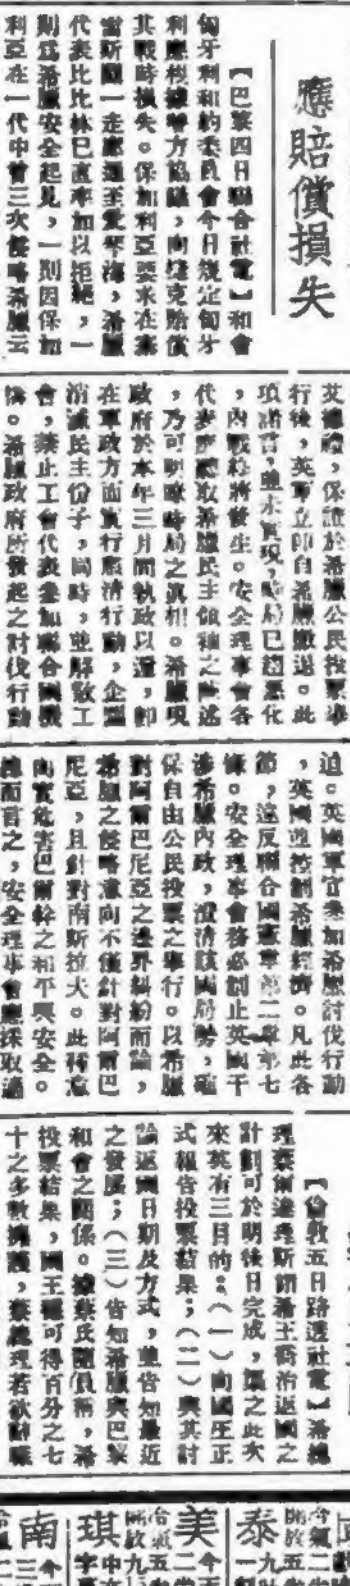 應賠償損失
【巴黎四日聯合社電】和會
匈牙利和約委員會今日規定匈牙
利應根據聯方協議，向捷克賠償
其戰時損失。保加利亞要求在
一走廊通至愛琴海，希臘
代表比比林已直率加以拒絕，一
則為希臘安全起見，一則因保加
利亞在一代中曾三次侵略希臘云
保證於希臘公民投票舉
行後，英軍立即自希臘撤退。此
項諾言，並未實現，時局已趨惡化
，內戰終將發生。安全理事會各
代表應聽取希臘民主領袖之陳述
，乃可明瞭時局之真相。希臘現
政府於本年三月間執政以還，即
在軍政方面實行肅清行動，企圖
消滅民主份子，同時，並解散工
會，禁止工會代表參加聯合國機
構。希臘政府所發起之討伐行動
迫。英國軍官參加希臘討伐行動
，英國並控制希臘經濟。凡此各
節，違反聯合國憲章第二章第七
條。安全理事會務必制止英國干
涉希臘內政，澄清該國局勢，確
保自由公民投票之舉行。以希臘
對阿爾巴尼亞之邊界糾紛而論，
希臘之侵略意向不僅針對阿爾巴
尼亞，且針對南斯拉夫。此種意
向實危害巴爾幹之和平與安全。
總而言之，安全理事會應採取適
【倫敦五日路透社電】希總
理蔡爾達理斯謂希王喬治返國之
計劃可於明後日完成，渠之此次
來英有三目的：（一）向國王正
式報告投票結果；（二）與其討
論返國日期及方式，並告知最近
之發展；（三）告知希臘與巴黎
和會之關係。據蔡氏隨員稱，希
投票結果，國王獲可得百分之七
十之多數擁護，蔡總理若欲辭職
泰
美
琪
南